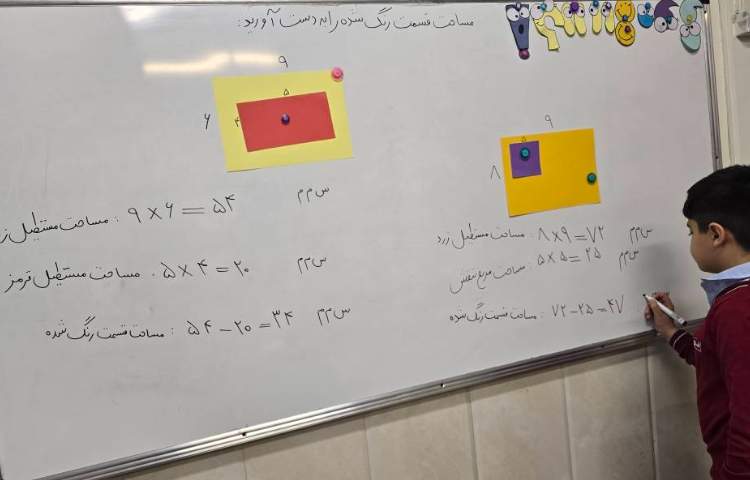 مساحت قسمت رنگ شده را به دست آورید:
۹
۵
۶
۴
مساحت مستطیل زر : ۹ × ۶ = ۵۴ س م م
مساحت مستطیل قرمز : ۵ × ۴ = ۲۰ س م م
مساحت قسمت رنگ شده : ۵۴ - ۲۰ = ۳۴ س م م
۹
۵
۸
مساحت مستطیل زرد : ۸ × ۹ = ۷۲ س م م
مساحت مربع بنفش ۵ × ۵ = ۲۵ س م م
مساحت قسمت رنگ شده : ۷۲ - ۲۵ = ۴۷